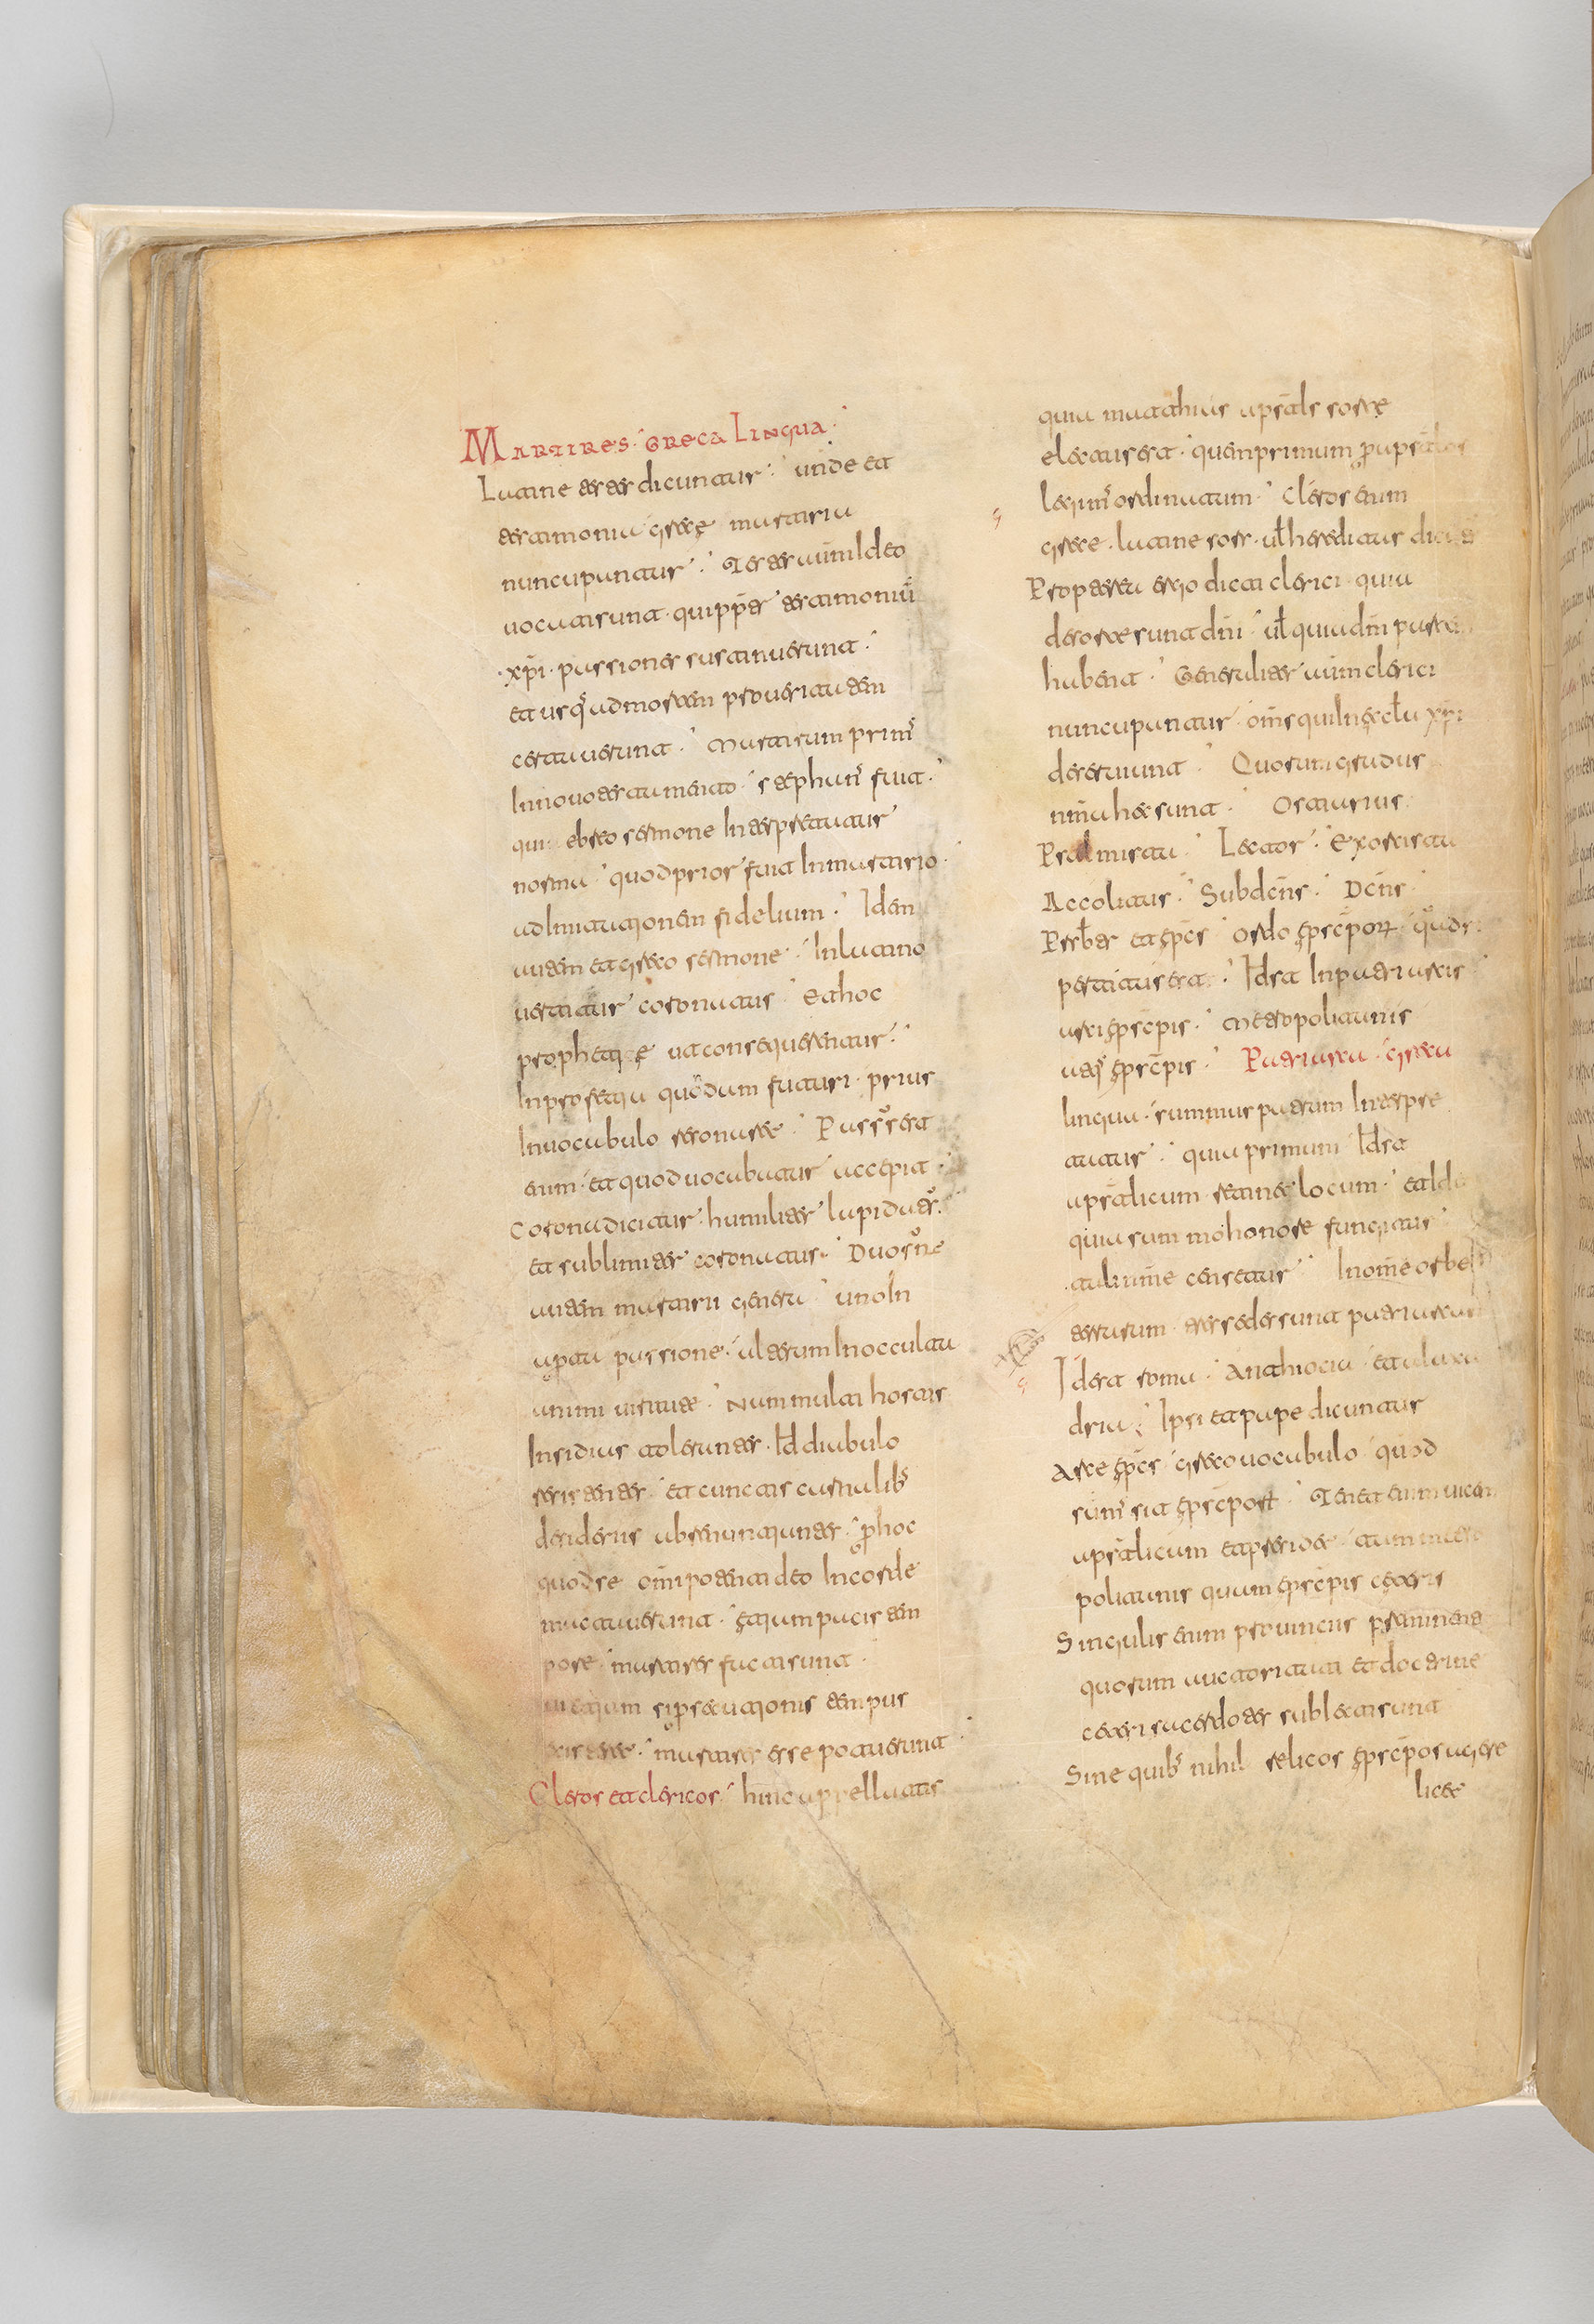 Martires· greca Lingua·
Latine testes dicuntur· unde et
testimonia grece martiria
nuncupantur· Testes autm̄ Ideo
uocati sunt· quipp̄e testimoniū
·xp̄i· passiones sustinuerunt·
et usq̄ ad mortem pro ueritatem
certauerunt· Martirum prim̄
In nouo testamento· stephan̄ fuit·
qui ebreo sermone Interpretatur
norma· quod prior fuit In martirio·
ad Imitationem fidelium· Idem
autem et greco sermone· In latino
uertitur coronatus· et hoc
prophetie ut consequerentur·
In profetia quodam futuri· prius
In uocabulo resonaret· Pass̄ est
enim· et quod uocabatur accepit·
Corona dicitur· humiliter lapidat̄·
et sublimiter coronatus· Duo s̄ne
autem martirii genera· uno In
ap̄ta passione· alterum In occulta
animi uirtute· Nam multi hostis
Insidias tolerantes· Id diabulo
resistentes· et cunctis carnalib̄
desideriis abrenuntiantes· p̄ hoc
quod se om̄ipotenti deo In corde
mactauerunt· etium pacis tem
pore· martires facti sunt·
si p̄secutionis tempus
martires esse potuerunt·
Cleros et clericos· hinc appellatis
quia mathius aps̄tls sorte
electus est· quem primum p̄ aps̄tolos
legim̄ ordinatum· Cleros enim
grece· latine sors· ul̄ hereditas
Propterea ergo dicti clerici· quia
de sorte sunt dn̄i· ul̄ quia dn̄i partem
habent· Generaliter autm̄ clerici
nuncupantur· om̄s qui In eccl̄a xp̄i
deseruiunt· Quorum gradus
nm̄a hec sunt· Ostiarius
Psalmista· Lector· Exorcista
Accolitus· Subdcn̄s· Dcn̄s·
Prsb̄ter et ep̄cs· ordo epsc̄port· quadri
pertitus est· Id est In patriarcis·
arciepsc̄pis· Metropolitanis
atq̄ epsc̄pis· Patriarca· greca
lingua· summus patrum Interpre
tatur· quia primum Id est
aps̄tlicum retinet locum· et Ideo
quia summo honore fungitur
tali nm̄e censetur· In om̄e orbe
terrarum tres sedes sunt patriarcul
Id est roma· Antiocia· et alexan
dria· Ipsi et pape dicuntur
Arceep̄cs· greco uocabulo· quod
sum̄ sit epsc̄port· Tenet enim uicem
aps̄tlicum et presidet· tum metro
politanis quam epsc̄pis ceteris
Singulis enim prouinciis preminent
quorum auctoritati et doctrine
ceteri sacerdotes sublecti sunt
Sine quib̄ nihil relicos epsc̄pos agere
licet